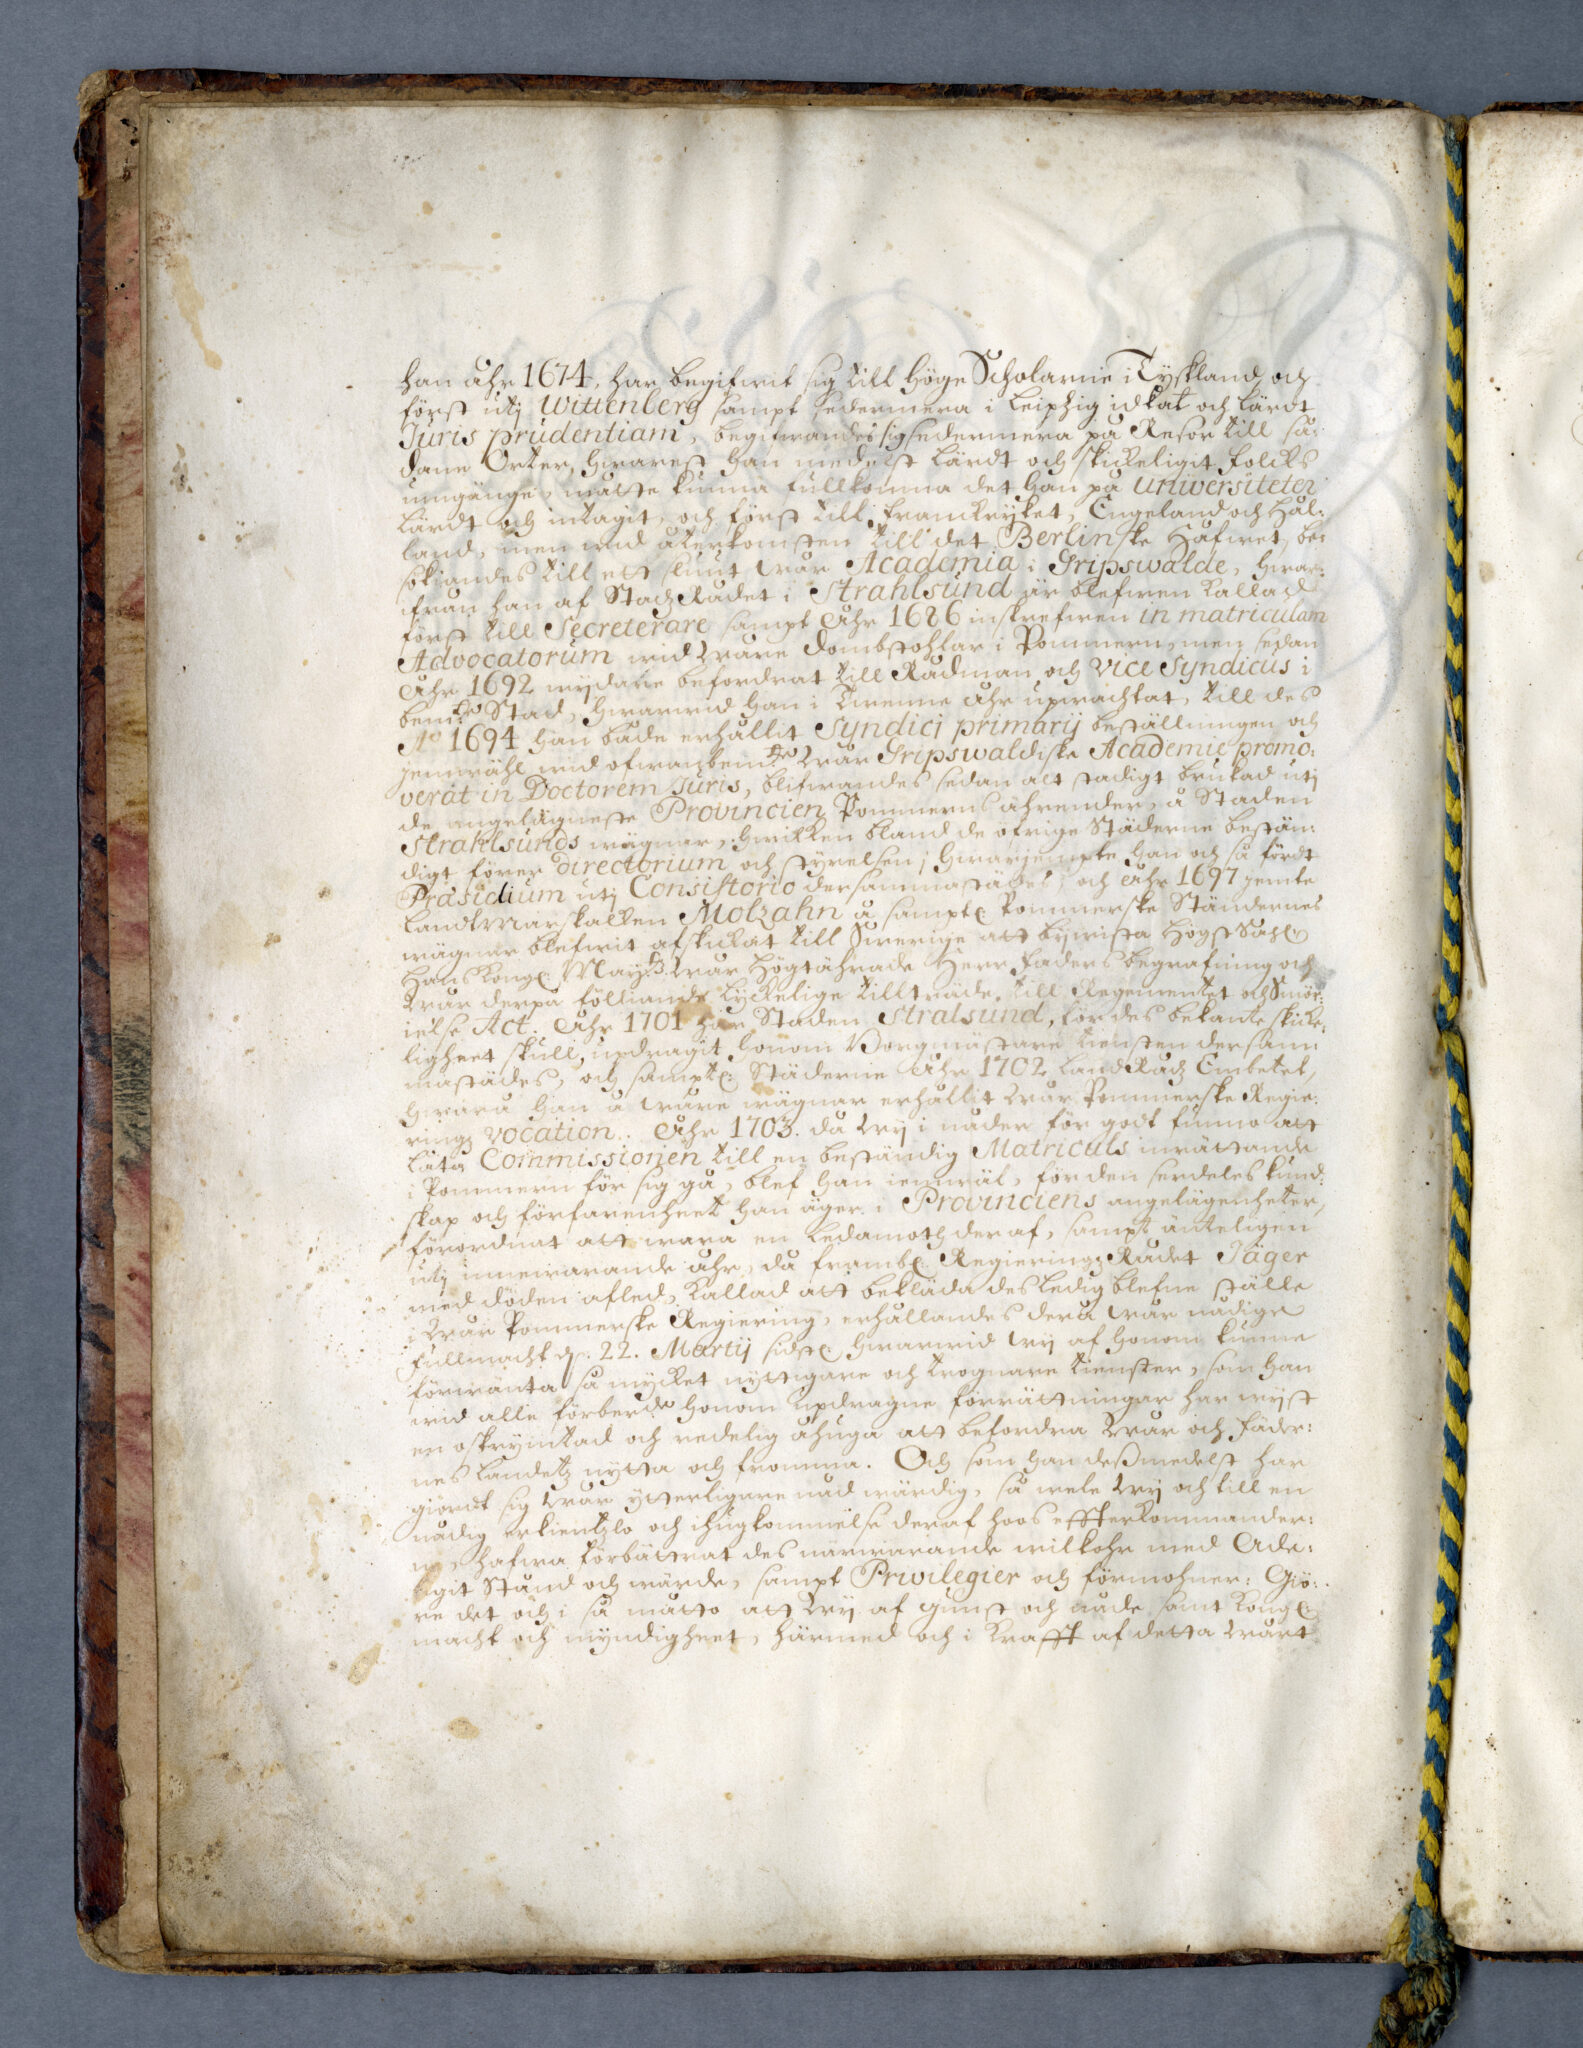 han åhr 1674, har begifwit sig till höge Scholarne i Tyskland och
först utj Wittenberg sampt sedermera i Leipzig idkat och lärdt
Juris prudentiam, begifwandes sig sedermera på Resor till så:
dane Orter, hwarest han medelst lärdt och skickeligit folcks
umgänge, måtte kunna fullkomna det han på Universiteter
lärdt och intagit, och först till Franckrijket, Engeland och Hål:
land, men wid återkomsten till det Berlinske Håfwet, be:
sökiandes till ett sluut wår Academia i Gripswalde, hwar:
ifrån han af StadzRådet i Strahlsund är blefwen kallad
först till Secreterare sampt åhr 1686 inskrefwen in matriculam
Advocatorum wid wåre Dombstohlar i Pommern, men sedan
åhr 1692 wijdare befordrat till Rådman och Vice Syndicus i
bem:te Stad, hwarwid han i Twenne åhr upwachtat, till des
A:o 1694 han både erhållit Syndici primarij beställningen och
jemwähl wid ofwanbem:te wår Gripswaldiske Academie promo:
verat in Doctorem Juris, blifwandes sedan alt stadigt brukad utj
de angelägneste Provincien Pommerns ährender, å Staden
Strahlsunds wägnar, hwilken bland de öfrige Städerne bestän:
digt förer directorium och styrelsen; hwarjempte han och så fördt
Præsidium utj Consistorio dersammastädes, och åhr 1697 jemte
Landtmarskalken Molzahn å samptl. Pommerske Ständernes
wägnar blefwit afskickat till Swerige att bijwista Högst Sahl.
Hans Kongl. Maij:tz wår högtährade Herr Faders begrafning och
wår derpå följiande lyckelige tillträde till Regementet och Smör:
ielse Act. Åhr 1701 har Staden Stralsund, för des bekante skicke:
ligheet skull, updragit honom Borgmästare tiensten dersam:
mastädes, och samptl. Städerne åhr 1702 LandRådz Embetet,
hwarå han å wåre wägnar erhållit wår Pommerske Regie:
ringz vocation. Åhr 1703. då wij i nåder för godt funno att
låta Commissionen till en beständig Matriculs inrättande
i Pommern för sig gå, blef han jemwäl, för den serdeles kund:
skap och förfarenheet han äger i Provinciens angelägenheter,
förordnat att wara en Ledamoth deraf, sampt änteligen
utj innewarande åhr, då frambl. RegieringzRådet Jäger
med döden afled, kallad att bekläda des ledig blefne ställe
i wår Pommerske Regiering, erhållandes derå wår nådige
fullmacht d. 22. Martij sidstl. hwarwid wij af honom kunne
förwänta så mycket nyttigare och trognare tienster, som han
wid alle förberde honom updragne förrättningar har wijst
en oskrymtad och redelig åhuga att befordra wår och Fäder:
nes Landetz nytta och fromma. Och som han dessmedelst har
giordt sig wår ytterligare nåd wärdig, så wele wij och till en
nådig erkientzlo och ihugkommelse deraf hoos effterkommander:
ne, hafwa förbättrat des närwarande wilkohr med Ade:
ligit Stånd och wärde, sampt Privilegier och förmohner: Giö:
re det och i så matto att wij af gunst och nåde samt Kongl.
macht och myndigheet, härmed och i Krafft af detta wårt